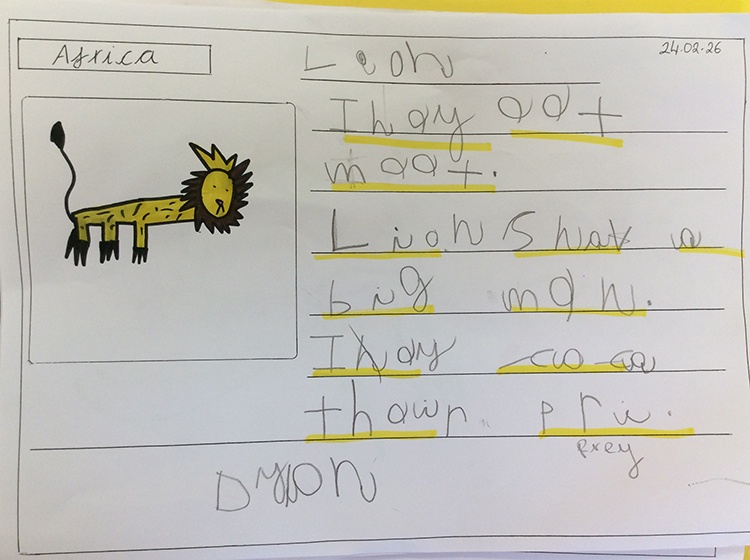 Africa
24.02.26
Lion
Thay aat
maat.
Lion shat a
big man.
Thay
thawr pri.
prey
Dyon